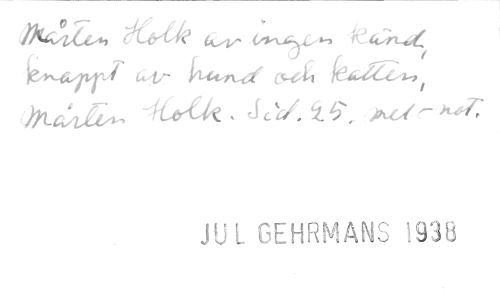 Mårten Holk av ingen känd,
knappt av hund och katten,
Mårten Holk. Sid. 25. mel-not.
JUL GEHRMANS 1938